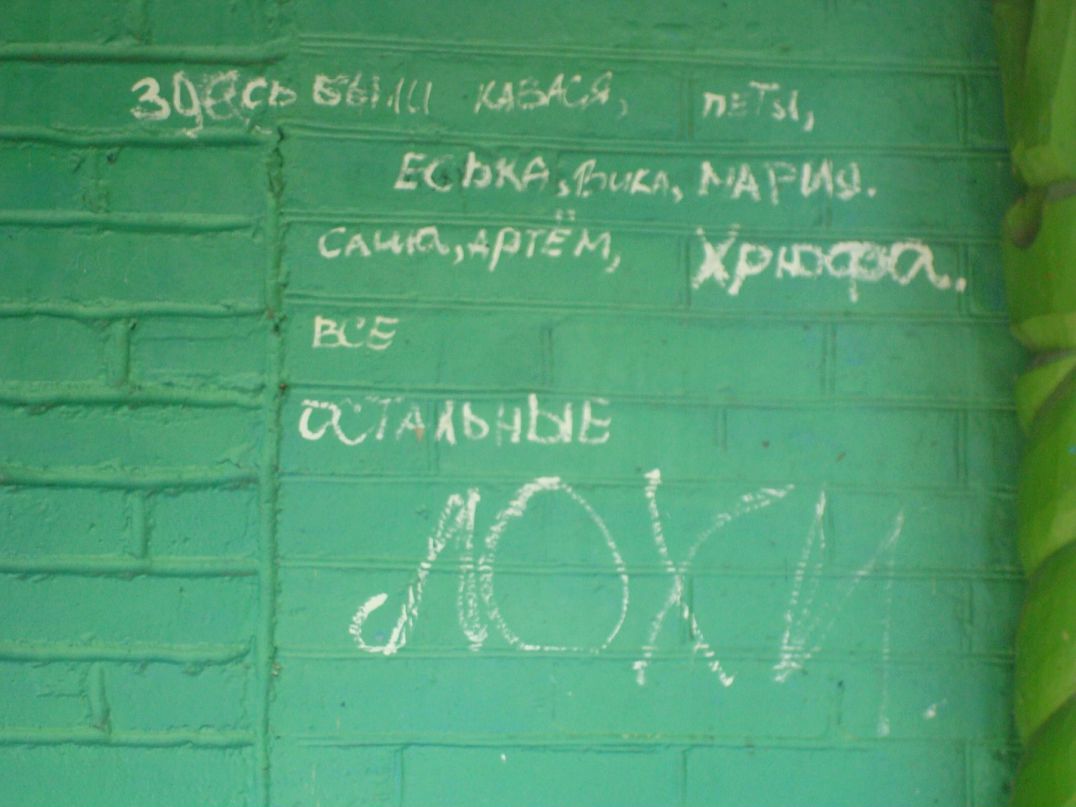 ЗДЕСЬ БЫЛИ КАВАСЯ, ПЕТЫ,
ЕСЬКА, ВИКА, МАРИЯ.
САША, АРТЁМ, Хрюфа.
ВСЕ
ОСТАЛЬНЫЕ
ЛОХИ